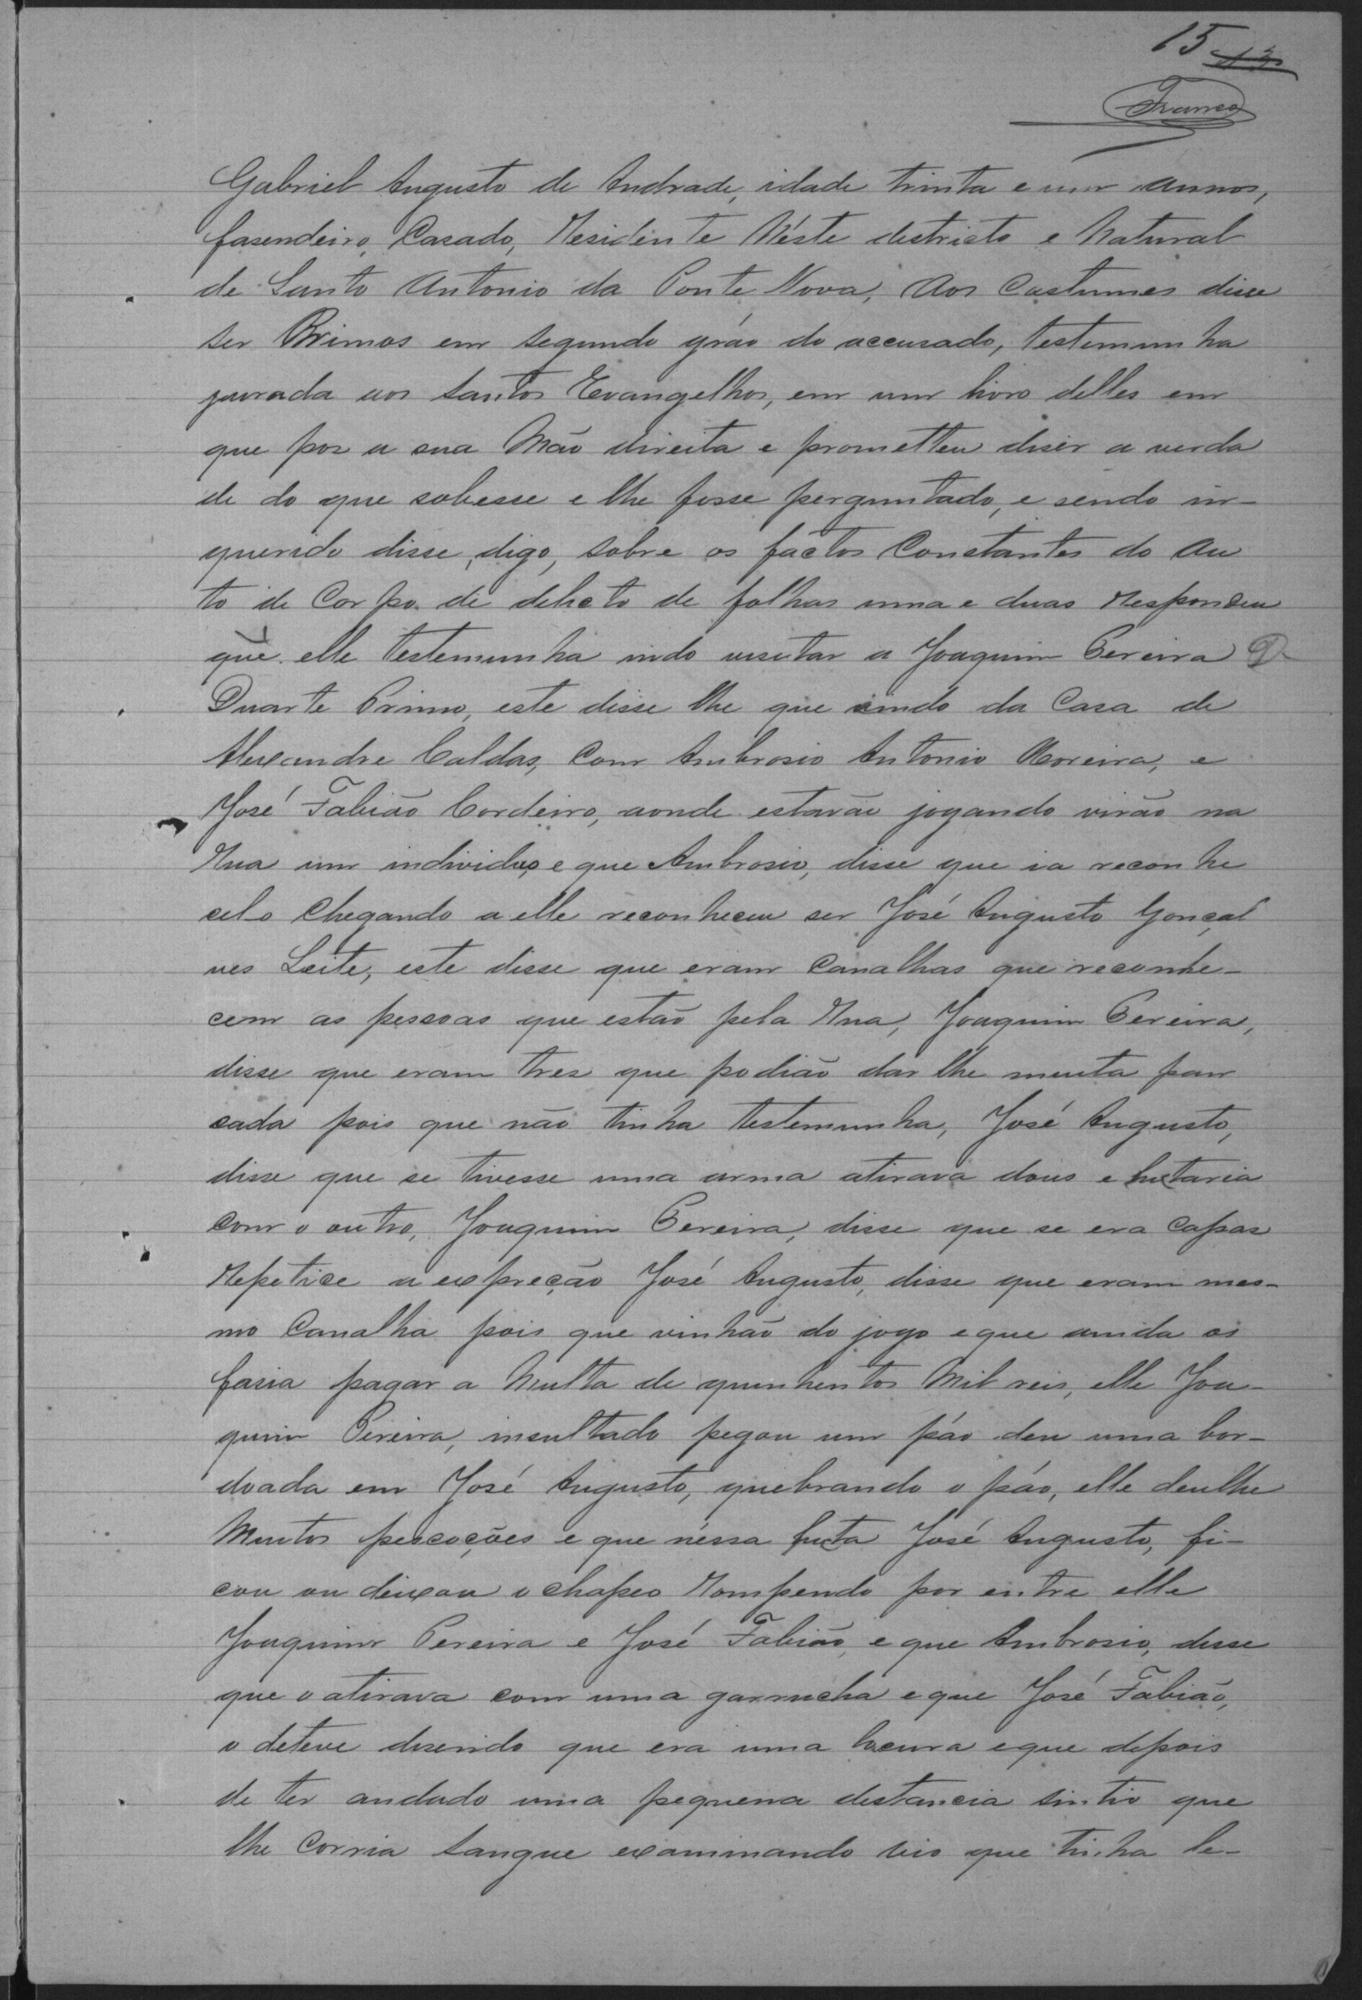 15 13
Franco
Gabriel Augusto de Andrade, idade trinta e um annos,
fasendeiro, Casado, Residente Néste districto e Natural
de Santo Antonio da Ponte Nova, Aos Custumes disse
ser Primos em segundo gráo do accusado, testemunha
jurada aos Santos Evangelhos, em um livro delles em
que pos a sua Mão direita e prometteu diser a verda
de do que sobesse e lhe fosse perguntado, e sendo in-
querido disse, digo, sobre os factos Constantes do Au
to de Corpo de delicto de folhas uma e duas Respondeu
que elle testemunha indo visitar a Joaquim Pereira D
Duarte Primo, este disse lhe que vindo da Casa de
Alexandre Caldas, Com Ambrosio Antonio Moreira, e
José Fabião Cordeiro, aonde estavão jogando virão na
Rua um individuo e que Ambrosio, disse que ia reconhe
celo Chegando a elle reconheceu ser José Augusto Gonçal
ves Leite, este disse que eram Canalhas que reconhe-
cem as pessoas que estão pela Rua, Joaquim Pereira,
disse que eram tres que podião dar lhe muita pan
cada pois que não tinha testemunha, José Augusto,
disse que se tivesse uma arma atirava dous e lutaria
Com o outro, Joaquim Pereira, disse que se era Capas
Repetice a expreção José Augusto, disse que eram mes-
mo Canalha pois que vinhão do jogo e que ainda os
faria pagar a Multa de quinhentos Mil reis, elle Joa-
quim Pereira, insultado pegou um páo deu uma bor-
doada em José Augusto, quebrando o páo, elle deulhe
Muitos pescoções e que néssa luta José Augusto, fi-
cou ou deixou o chapeo Rompendo por entre elle
Joaquim Pereira e José Fabião, e que Ambrosio, disse
que o atirava com uma garrucha e que José Fabião,
o deteve disendo que era uma locura e que depois
de ter andado uma pequena distancia sintio que
lhe Corria Sangue examinando vio que tinha le-